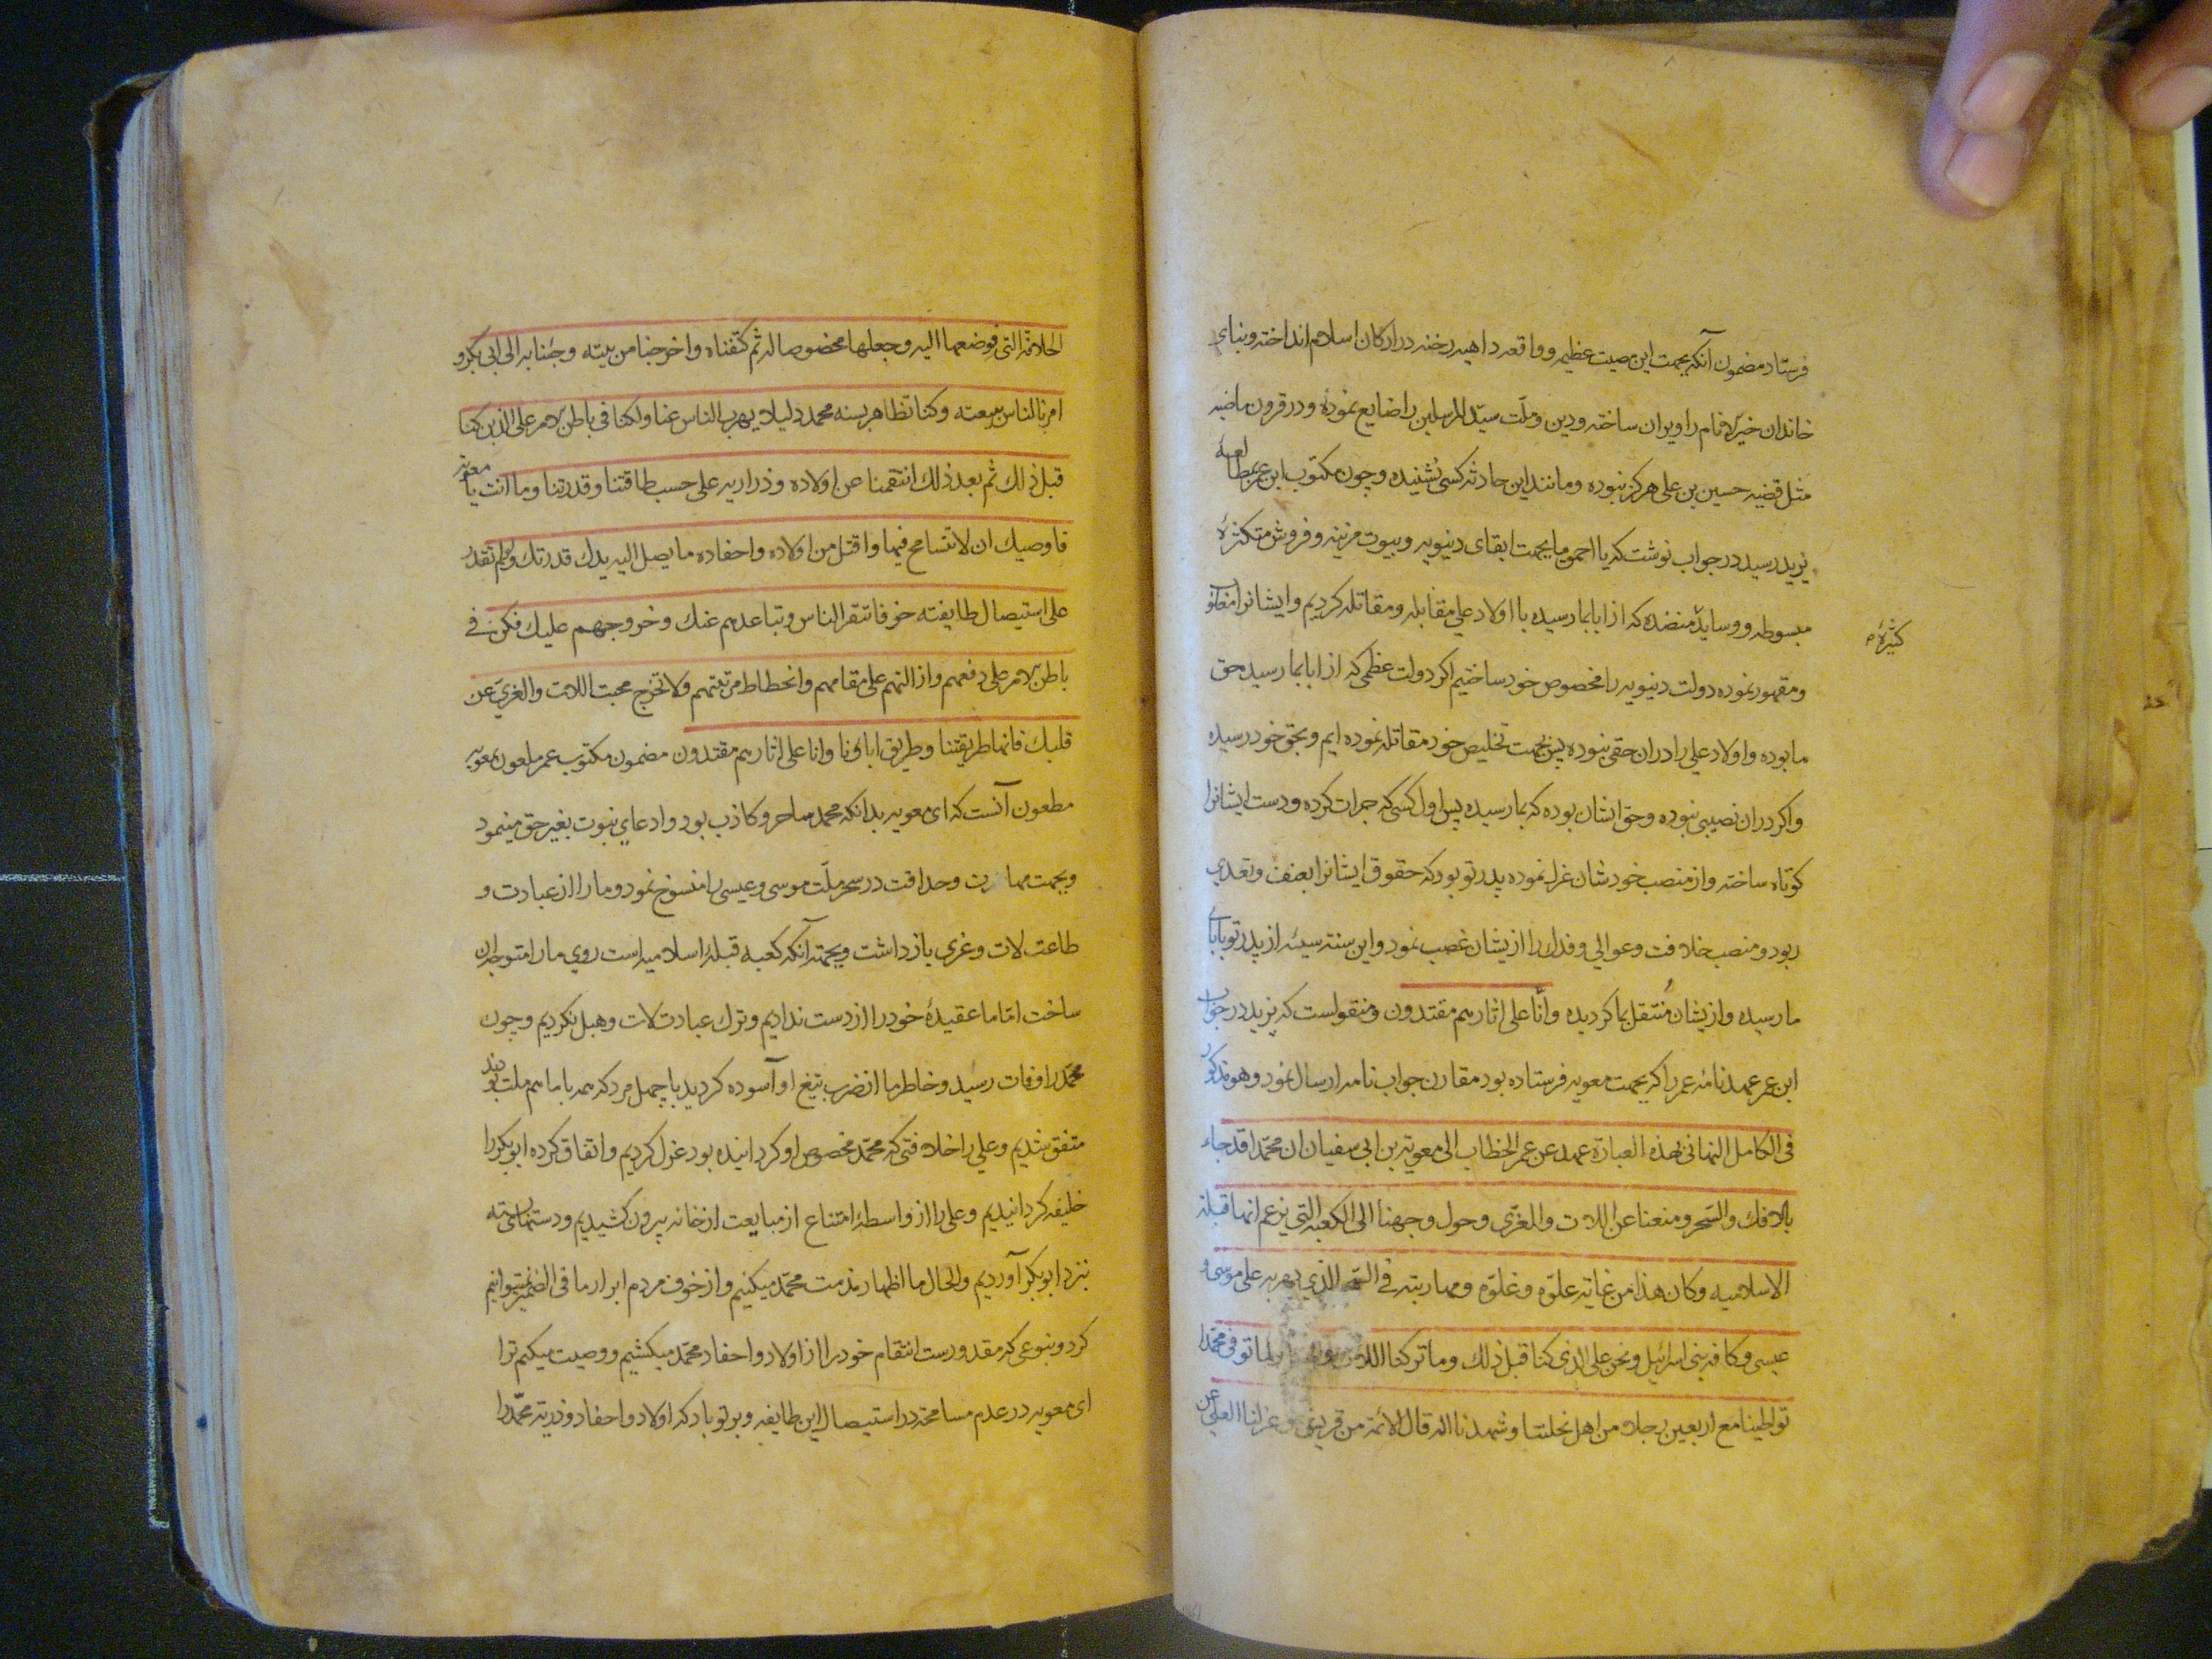 فرستاد مضمون آنکه بجهت این مصیبت عظیمه و واقعه داهیه رخنه در ارکان اسلام انداخته و بنای
خاندان خیر الانام را ویران ساخته و دین و ملّت سیّد المرسلین را ضایع نموده و در قرون ماضیه
مثل قضیه حسین بن علی هرکز نبوده و مانند این حادثه کسی نشنیده و چون مکتوب ابن عمر بمطالعه
یزید رسید در جواب نوشت که یا احمق ما بجهت ابقای دنیویه و بیوت مزینه و فروش متکثره
کثیرهٔ
مبسوطه و وسایدٔ منضده که از ابا بما رسیده با اولاد علی مقابله و مقاتله کردیم و ایشانرا مغلوب
و مقهور نموده دولت دنیویه را مخصوص خود ساختیم اکر دولت عظمی که از ابا بما رسیده حق
ما بوده و اولاد علی را در ان حقی نبوده پس بجهت تخلیص خود مقاتله نموده ایم و بحق خود رسیده
و اکر در ان نصیبی نبوده و حق ایشان بوده که بما رسیده پس اول کسی که جرات کرده و دست ایشانرا
کوتاه ساخته و از منصب خودشان عزل نموده پدر تو بود که حقوق ایشانرا بعنف و تعدی
ربود و منصب خلافت و عوالی و فدک را از یشان غصب نمود و این سنته سیئه از پدر تو بابای
ما رسیده و از یشان منتقل بما کردیده و انّا علی اثارهم مقتدون و منقولست که یزید در جواب
ابن عمر عهد نامهٔ عمر را که بجهت معویه فرستاده بود مقارن جواب نامه ارسال نمود و هو مذکور
فی الکامل البهائی بهذه العبارة عهد عن عمر الخطاب الی معویة بن ابی سفیان ان محمّدا قد جاء
بالافک و السّحر و منعنا عن اللات و العزّی و حول وجهنا الی الکعبه التی یزعم انها قبلة
الاسلامیه و کان هذا من غایته علوّه و غلوّه و مهارته فی السحر الذی بهر به علی موسی و
عیسی و کافه بنی اسرائیل و نحن علی الذی کنا قبل ذلک و ما ترکنا اللات فلما توفی محمّدا
تواطینا مع اربعین رجلا من اهل نحلتنا و شهدنا انه قال الائمه من قریش و عزلنا العلی عن
الخلافه التی فوضعها الیه و جعلها مخصوصا له ثم کتفناه و اخرجنا من بیته و جئنا به الی ابی بکر و
امرنا الناس ببیعته و کنا تظاهر بسنه محمد دلیلا یهرب الناس عنا و لکنا فی باطن الامر علی الذین کنا
قبل ذلک ثم بعد ذلک انتقمنا عن اولاده و ذراریه علی حسب طاقتنا و قدرتنا و ما انت یا معویه
فاوصیک ان لا تتسامح فیها و اقتل من اولاده و احفاده ما یصل الیه یدک قدرتک و لم تقدر
علی استیصال طایفته خوفا تنفر الناس و تباعدهم عنک و خروجهم علیک فکن فی
باطن الامر علی دفعهم و ازالتهم علی مقامهم و انحطاط مرتبتهم و لا تخرج محبت اللات و العزّی عن
قلبک فانها طریقتنا و طریق ابائنا و انا علی اثارهم مقتدون مضمون مکتوب عمر ملعون بمعویه
مطعون آنست که ای معویه بدانکه محمد ساحر و کاذب بود و ادعای نبوت بغیر حق مینمود
و بجهت مهارت و حذاقت در سحر ملّت موسی و عیسی را منسوخ نمود و ما را از عبادت و
طاعت لات و عزی باز داشت و بجهته آنکه کعبه قبلهٔ اسلامیه است روی ما را متوجه ان
ساخت امّا ما عقیدهٔ خود را از دست ندادیم و ترک عبادت لات و هبل نکردیم و چون
محمّد را وفات رسید و خاطر ما از ضرب تیغ او آسوده کردید با چهل مرد که همه با ما هم ملت بودند
متفق شدیم و علی را خلافتی که محمّد مخصوص او کردانیده بود عزل کردیم و اتفاق کرده ابوبکر را
خلیفه کردانیدیم و علی را از واسطهٔ امتناع از مبایعت از خانه بیرون کشیدیم و دستها بسته
نزد ابوبکر آوردیم و الحال ما اظهار مذمت محمّد میکنیم و از خوف مردم ابراز ما فی الضمیر نمیتوانیم
کرد و بنوعی که مقدورست انتقام خود را از اولاد و احفاد محمّد میکشیم و وصیت میکنم ترا
ای معویه در عدم مسامحه در استیصال این طایفه و بر تو باد که اولاد و احفاد و ذریته محمّد را